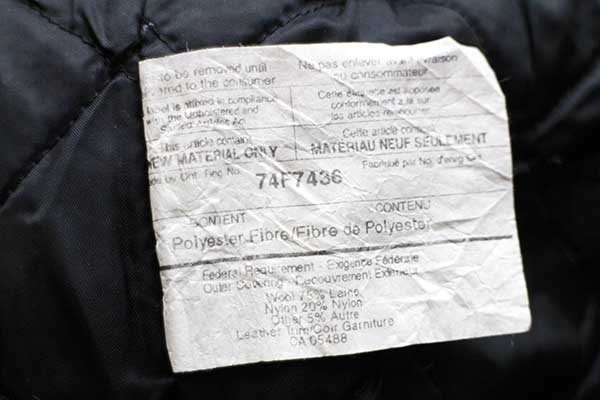 to be removed until
Ne pas enlever avant livraison
ered to the consumer
au consommateur
label is affixed in compliance
with the Upholstered and
Stuffed Articles Act
Cette étiquette est apposée
conformément à la loi sur
les articles rembourrés
This article contains
NEW MATERIAL ONLY
Cette article contient
MATÉRIAU NEUF SEULEMENT
ade by Ont. Reg No.
Fabriqué par No. d'enrg Ont
74F7436
CONTENT
CONTENU
Polyester Fibre/Fibre de Polyester
Federal Requirement - Exigence Fédérale
Outer Covering - Decouvrement Exterieur
Wool 75% Laine
Nylon 20% Nylon
Other 5% Autre
Leather Trim/Coir Garniture
CA 05488